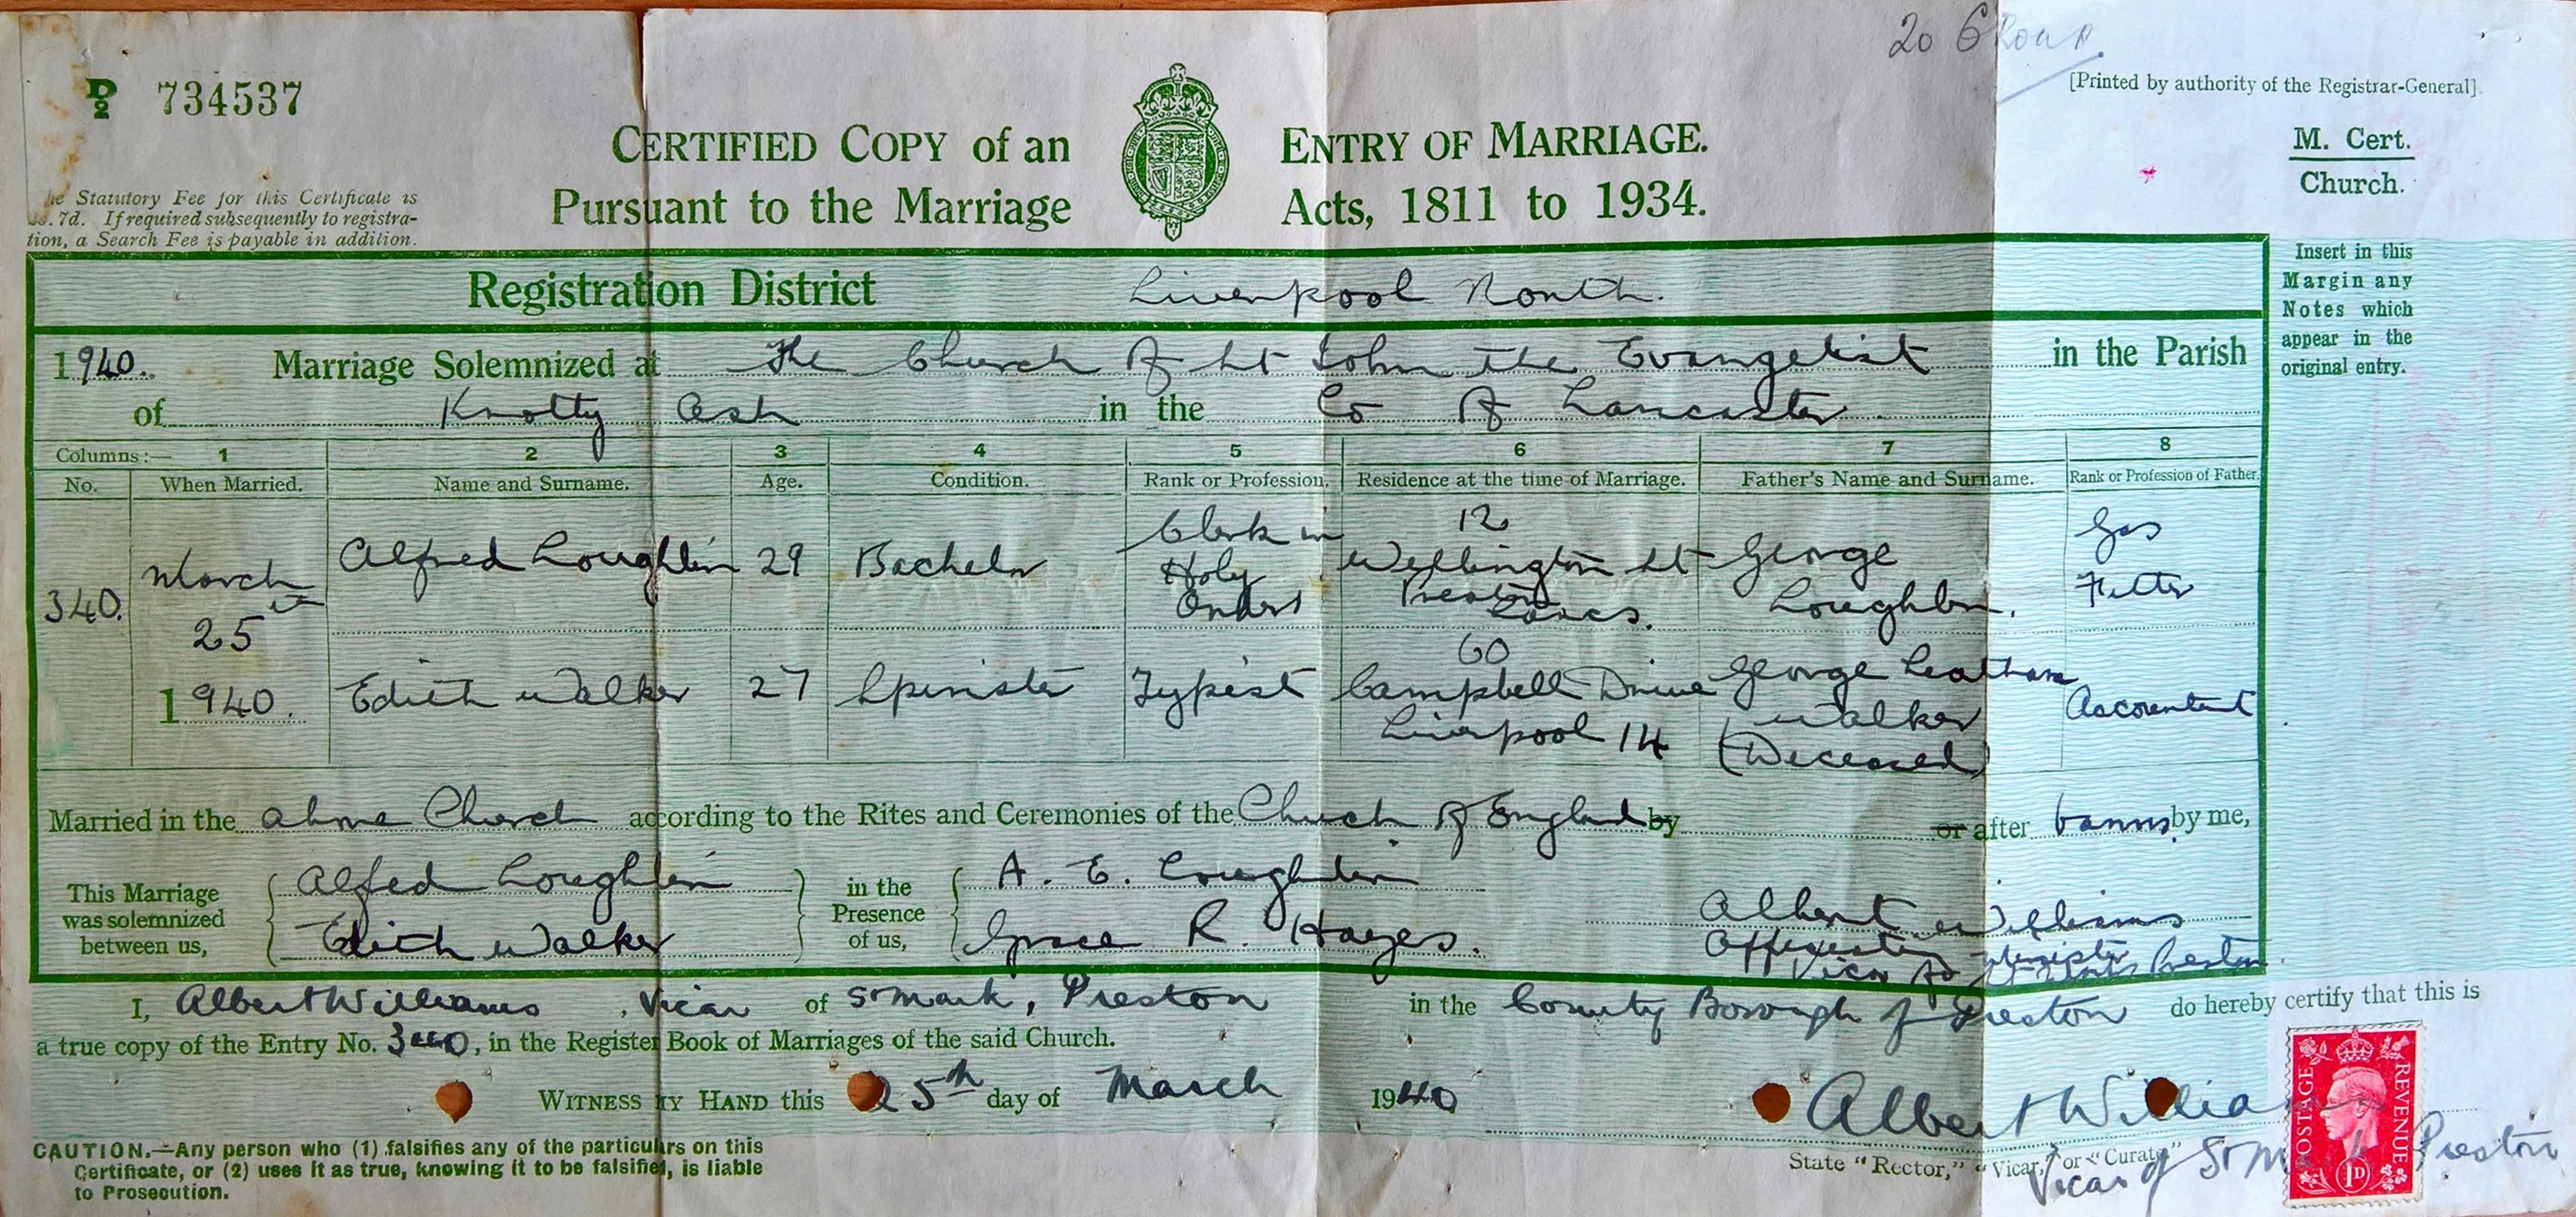 20 6
[Printed by authority of the Registrar-General].
D 2 734537
M. Cert.
Church.
CERTIFIED COPY of an ENTRY OF MARRIAGE.
Pursuant to the Marriage Acts, 1811 to 1934.
he Statutory Fee for this Certificate is
s. 7d. If required subsequently to registra-
tion, a Search Fee is payable in addition.
Insert in this
Margin any
Notes which
appear in the
original entry.
Registration District Liverpool North.
1940. Marriage Solemnized at The Church of St John the Evangelist in the Parish
of Knotty Ash in the Co of Lancaster
Columns:— 1 2 3 4 5 6 7 8
No. When Married. Name and Surname. Age. Condition. Rank or Profession. Residence at the time of Marriage. Father's Name and Surname. Rank or Profession of Father.
340. March 25th 1940.
Alfred Loughlin 29 Bachelor Clerk in Holy Orders 12 Wellington St Preston Lancs. George Loughlin. Gas Fitter
Edith Walker 27 Spinster Typist 60 Campbell Drive Liverpool 14 George Leatham Walker (Deceased) Accountant
Married in the above Church according to the Rites and Ceremonies of the Church of England by or after banns by me,
This Marriage
was solemnized
between us,
Alfred Loughlin
Edith Walker
in the
Presence
of us,
A. E. Loughlin
Grace R. Hayes.
Albert Williams
Officiating Minister
Vicar of St Marks Preston
I, Albert Williams, Vicar of St Mark, Preston in the County Borough of Preston do hereby certify that this is
a true copy of the Entry No. 340, in the Register Book of Marriages of the said Church.
WITNESS MY HAND this 25th day of March 1940
Albert Williams
State "Rector," "Vicar," or "Curate"
Vicar of St Mark Preston
POSTAGE REVENUE
1D
CAUTION.—Any person who (1) falsifies any of the particulars on this
Certificate, or (2) uses it as true, knowing it to be falsified, is liable
to Prosecution.